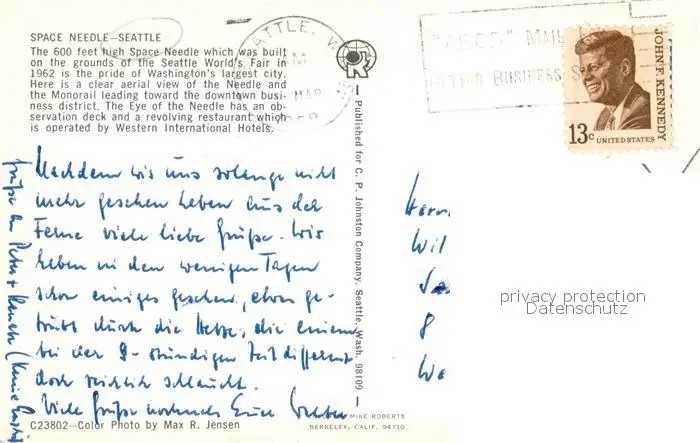 SPACE NEEDLE—SEATTLE
The 600 feet high Space Needle which was built
on the grounds of the Seattle World's Fair in
1962 is the pride of Washington's largest city.
Here is a clear aerial view of the Needle and
the Monorail leading toward the downtown busi-
ness district. The Eye of the Needle has an ob-
servation deck and a revolving restaurant which
is operated by Western International Hotels.
SEATTLE, W
MAR
MAIL
BUSINESS
JOHN F. KENNEDY
13c UNITED STATES
Nachdem wir uns solange nicht
mehr gesehen haben aus der
Ferne viele liebe Grüße. Wir
haben in den wenigen Tagen
schon einiges gesehen, etwas ge-
trübt durch die Hetze, die einem
bei der 8-stündigen Zeitdifferenz
doch reichlich schlaucht.
Viele Grüße nochmals Eure
Grüße an Peter +
Published for C. P. Johnston Company, Seattle, Wash. 98109
Herrn
Wil
8
privacy protection
Datenschutz
C23802—Color Photo by Max R. Jensen
MIKE ROBERTS
BERKELEY, CALIF. 94710